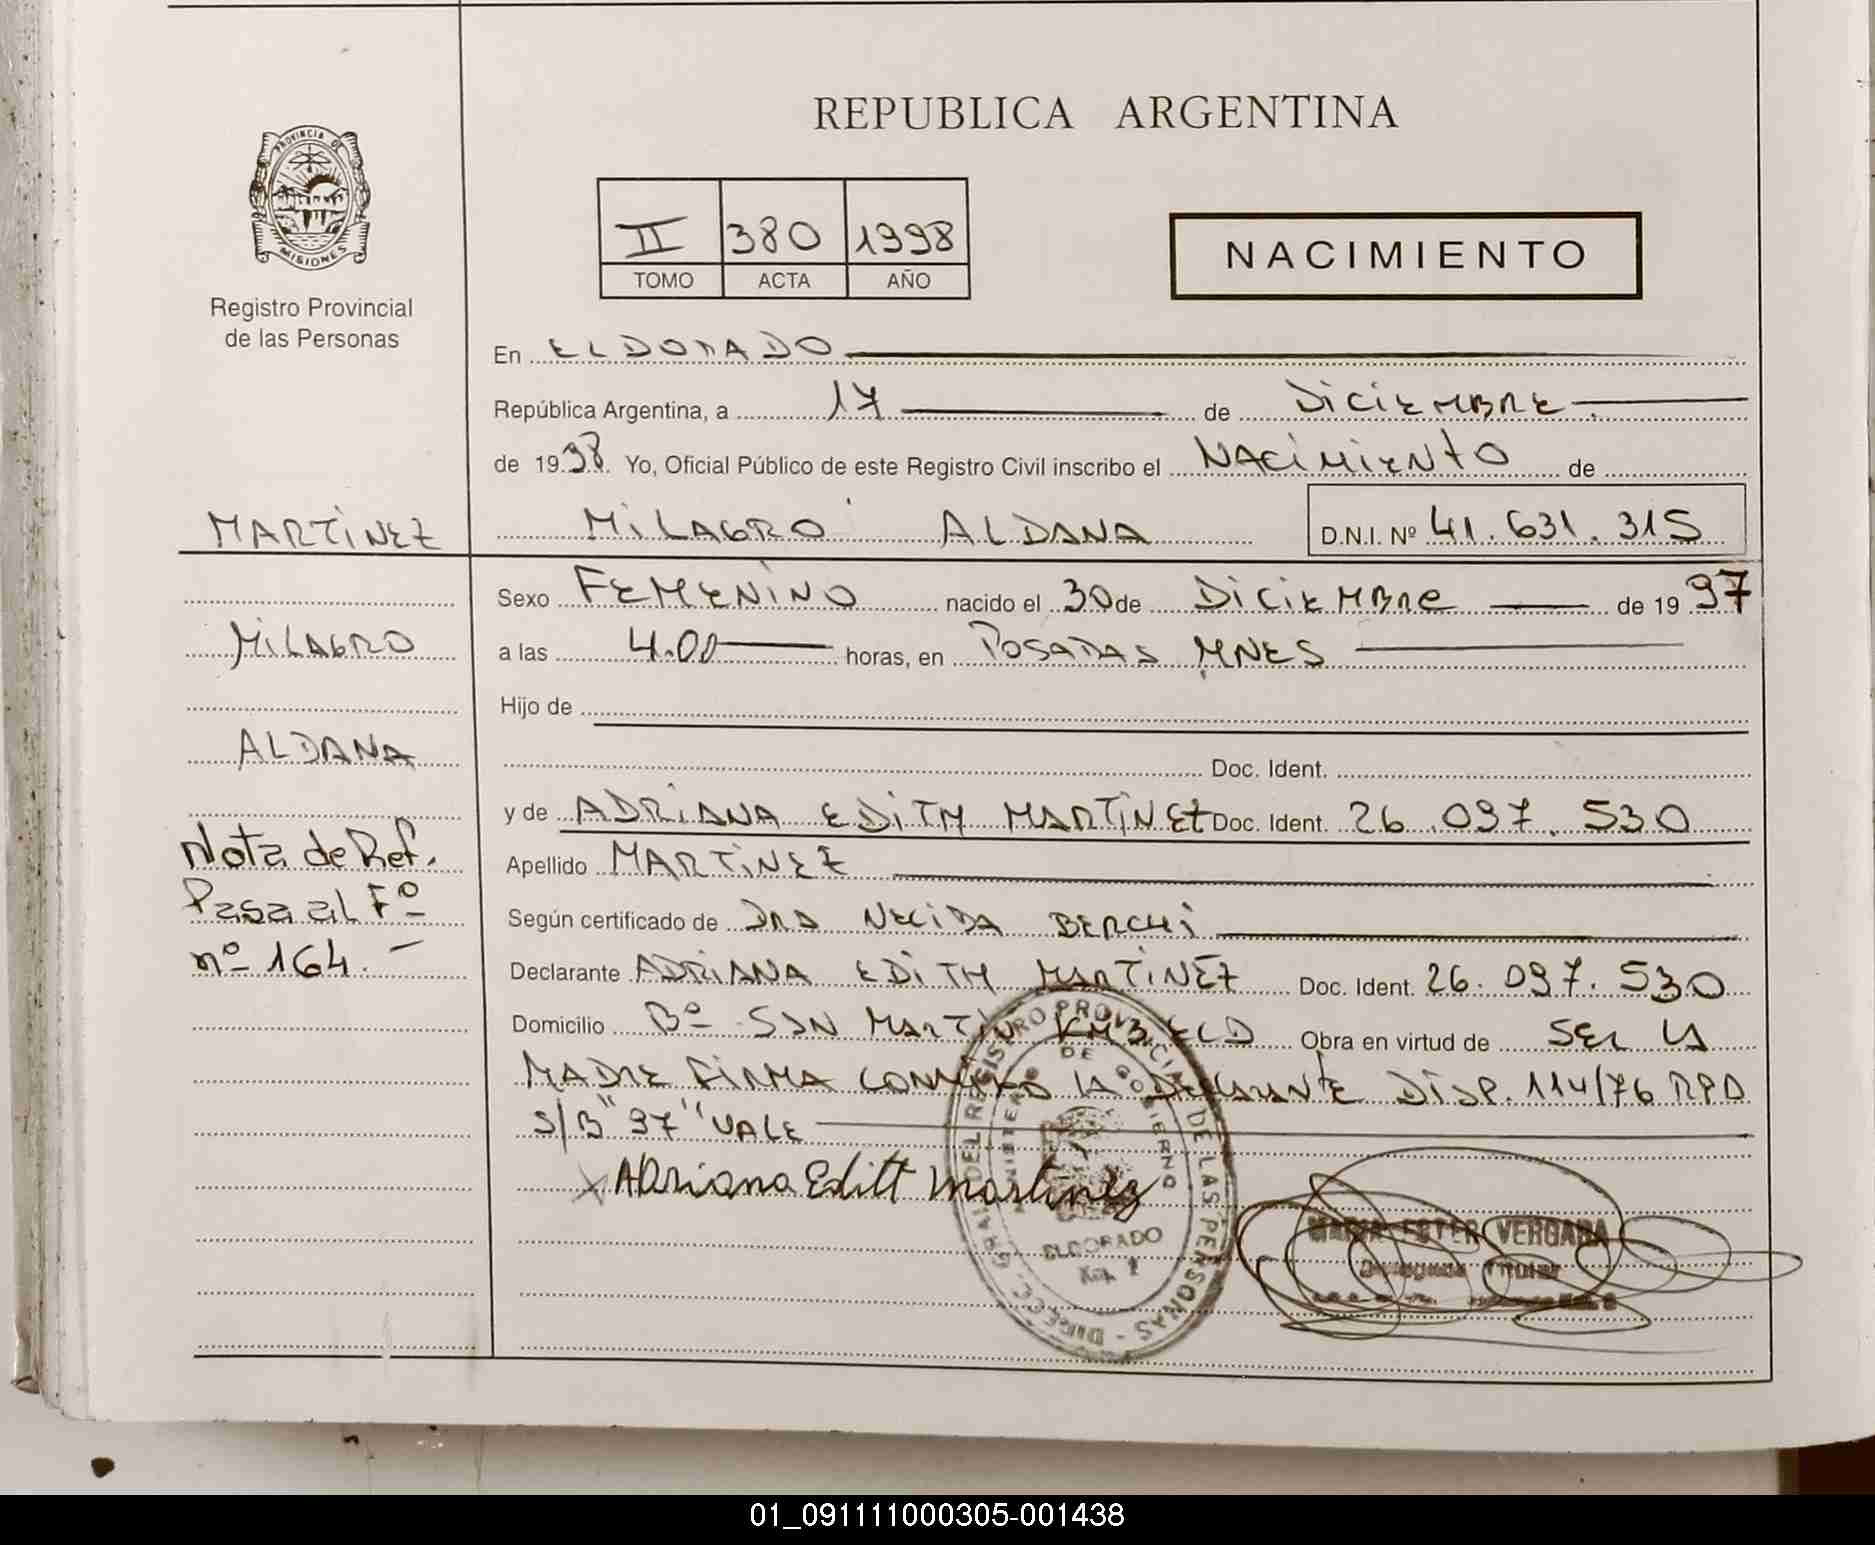 REPUBLICA ARGENTINA
PROVINCIA DE
MISIONES
Registro Provincial
de las Personas
II 380 1998
TOMO ACTA AÑO
NACIMIENTO
En ELDORADO
República Argentina, a 17 de DiCiEMBRE
de 1998. Yo, Oficial Público de este Registro Civil inscribo el NACiMiENtO de
MARTiNEZ
MiLAGRO ALDANA D.N.I. Nº 41.631.315
Sexo FEMENiNO nacido el 30 de DiCiEMBRE de 1997
MiLAGRO
a las 4.00 horas, en POSADAS MNES
Hijo de
ALDANA
Doc. Ident.
y de ADRiANA EDiTH MARTiNEZ Doc. Ident. 26.097.530
Nota de Ref.
Apellido MARTiNEZ
Pasa al Fº
Según certificado de DRA NELiDA BERCHi
nº 164.-
Declarante ADRiANA EDiTH MARTiNEZ Doc. Ident. 26.097.530
Domicilio Bº SAN MARTiN KM 3 ELD Obra en virtud de SER LA
MADRE FiRMA CONMiGO LA DECLARANTE DiSP. 114/76 RPD
S/B "97" VALE
X Adriana Editt Martinez
DIRECC. GRAL DEL REGISTRO PROVINCIAL DE LAS PERSONAS
MINISTERIO DE GOBIERNO
ELDORADO
Km. 2
MARIA ESTER VERGARA
Delegada Titular
01_091111000305-001438